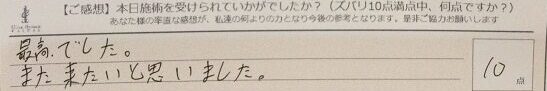 【ご感想】本日施術を受けられていかがでしたか？（ズバリ10点満点中、何点ですか？）
あなた様の率直な感想が、私達の何よりの力となり今後の参考となります。是非ご協力お願いします
最高でした。
また来たいと思いました。
10点